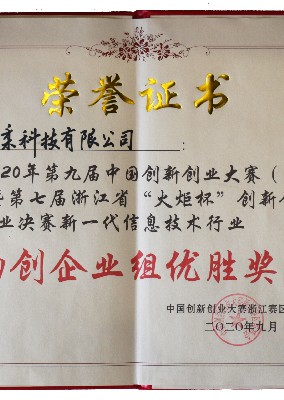 荣誉证书
科技有限公司:
20年第九届中国创新创业大赛(
第七届浙江省“火炬杯”创新创
业决赛新一代信息技术行业
创企业组优胜奖
中国创新创业大赛浙江赛区
二〇二〇年九月